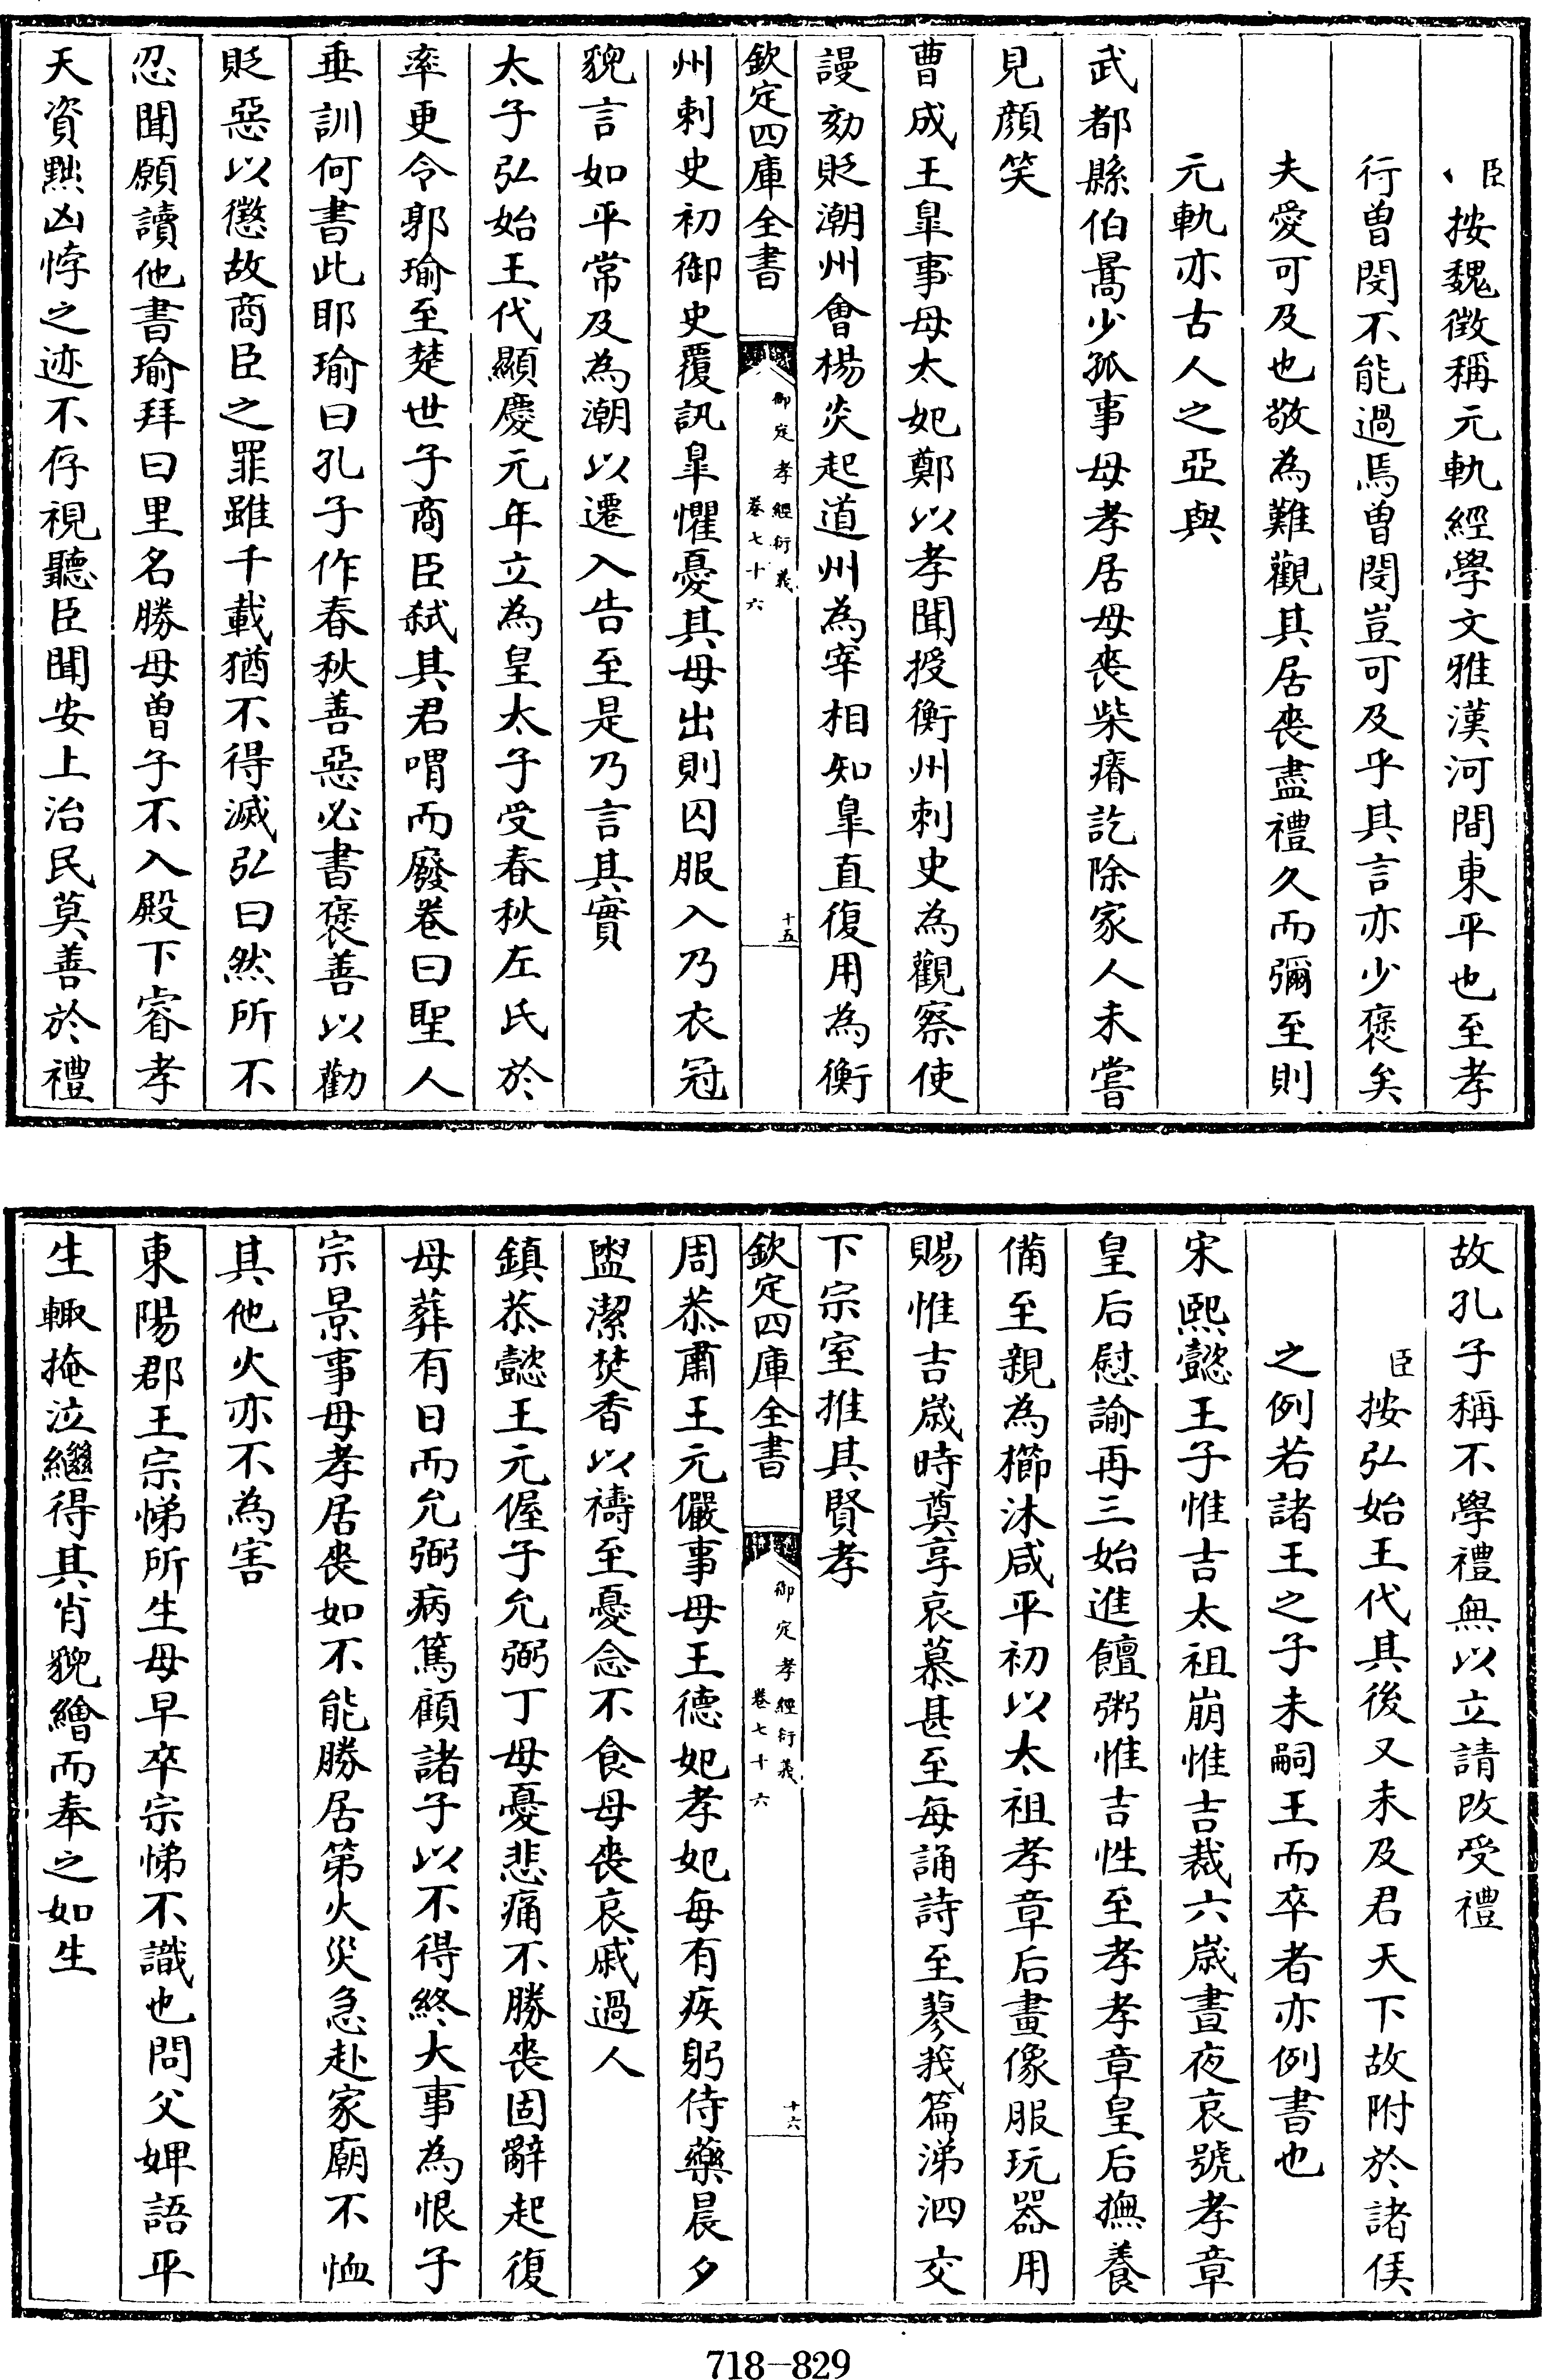 臣按魏徵稱元軌經學文雅漢河間東平也至孝
行曾閔不能過焉曾閔豈可及乎其言亦少褒矣
夫愛可及也敬為難觀其居喪盡禮久而彌至則
元軌亦古人之亞與
武都縣伯暠少孤事母孝居母喪柴瘠訖除家人未嘗
見顔笑
曹成王臯事母太妃鄭以孝聞授衡州刺史為觀察使
謾劾貶潮州會楊炎起道州為宰相知臯直復用為衡
欽定四庫全書
御定孝經衍義
卷七十六
十五
州刺史初御史覆訊臯懼憂其母出則囚服入乃衣冠
貌言如平常及為潮以遷入告至是乃言其實
太子弘始王代顯慶元年立為皇太子受春秋左氏於
率更令郭瑜至楚世子商臣弑其君喟而廢卷曰聖人
垂訓何書此耶瑜曰孔子作春秋善惡必書褒善以勸
貶惡以懲故商臣之罪雖千載猶不得滅弘曰然所不
忍聞願讀他書瑜拜曰里名勝母曾子不入殿下睿孝
天資黜凶悖之迹不存視聽臣聞安上治民莫善於禮
故孔子稱不學禮無以立請改受禮
臣按弘始王代其後又未及君天下故附於諸侯
之例若諸王之子未嗣王而卒者亦例書也
宋熙懿王子惟吉太祖崩惟吉裁六歲晝夜哀號孝章
皇后慰諭再三始進饘粥惟吉性至孝孝章皇后撫養
備至親為櫛沐咸平初以太祖孝章后畫像服玩器用
賜惟吉歲時奠享哀慕甚至每誦詩至蓼莪篇涕泗交
下宗室推其賢孝
欽定四庫全書
御定孝經衍義
卷七十六
十六
周恭肅王元儼事母王德妃孝妃每有疾躬侍藥晨夕
盥潔焚香以禱至憂念不食母喪哀戚過人
鎮恭懿王元偓子允弼丁母憂悲痛不勝喪固辭起復
母葬有日而允弼病篤顧諸子以不得終大事為恨子
宗景事母孝居喪如不能勝居第火災急赴家廟不恤
其他火亦不為害
東陽郡王宗悌所生母早卒宗悌不識也問父婢語平
生輙掩泣繼得其肖貌繪而奉之如生
718-829